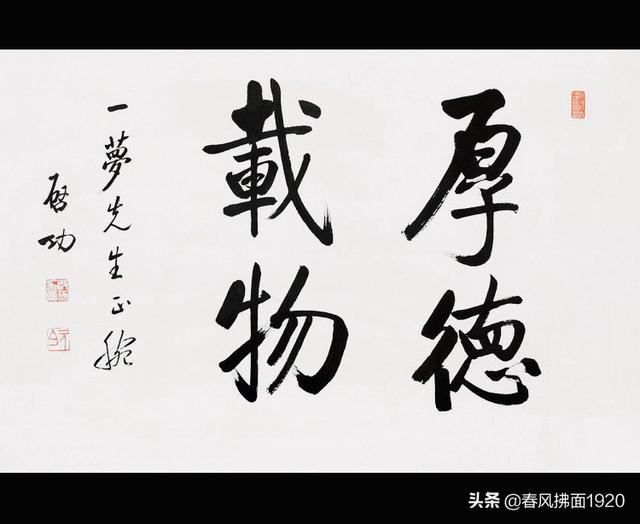 厚德
載物
一夢先生正腕
启功
头条 @春风拂面1920